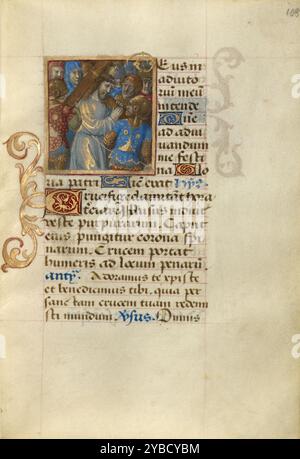 108
Eus in
adiuto
rium meū
intende
Dñe
ad adiu
uandum
me festi
na Glo
ria patri Sicut erat
Crucifige clamitant hora
veste purpurarum. Caput
eius pungitur corona spi
narum. Crucem portat
humeris ad locum penarū
Adoramus te xp̄iste
et benedicimus tibi. quia per
sanctam crucem tuam redem
isti mundum Omnis
alamy
Image ID: 2YBCYBM
www.alamy.com